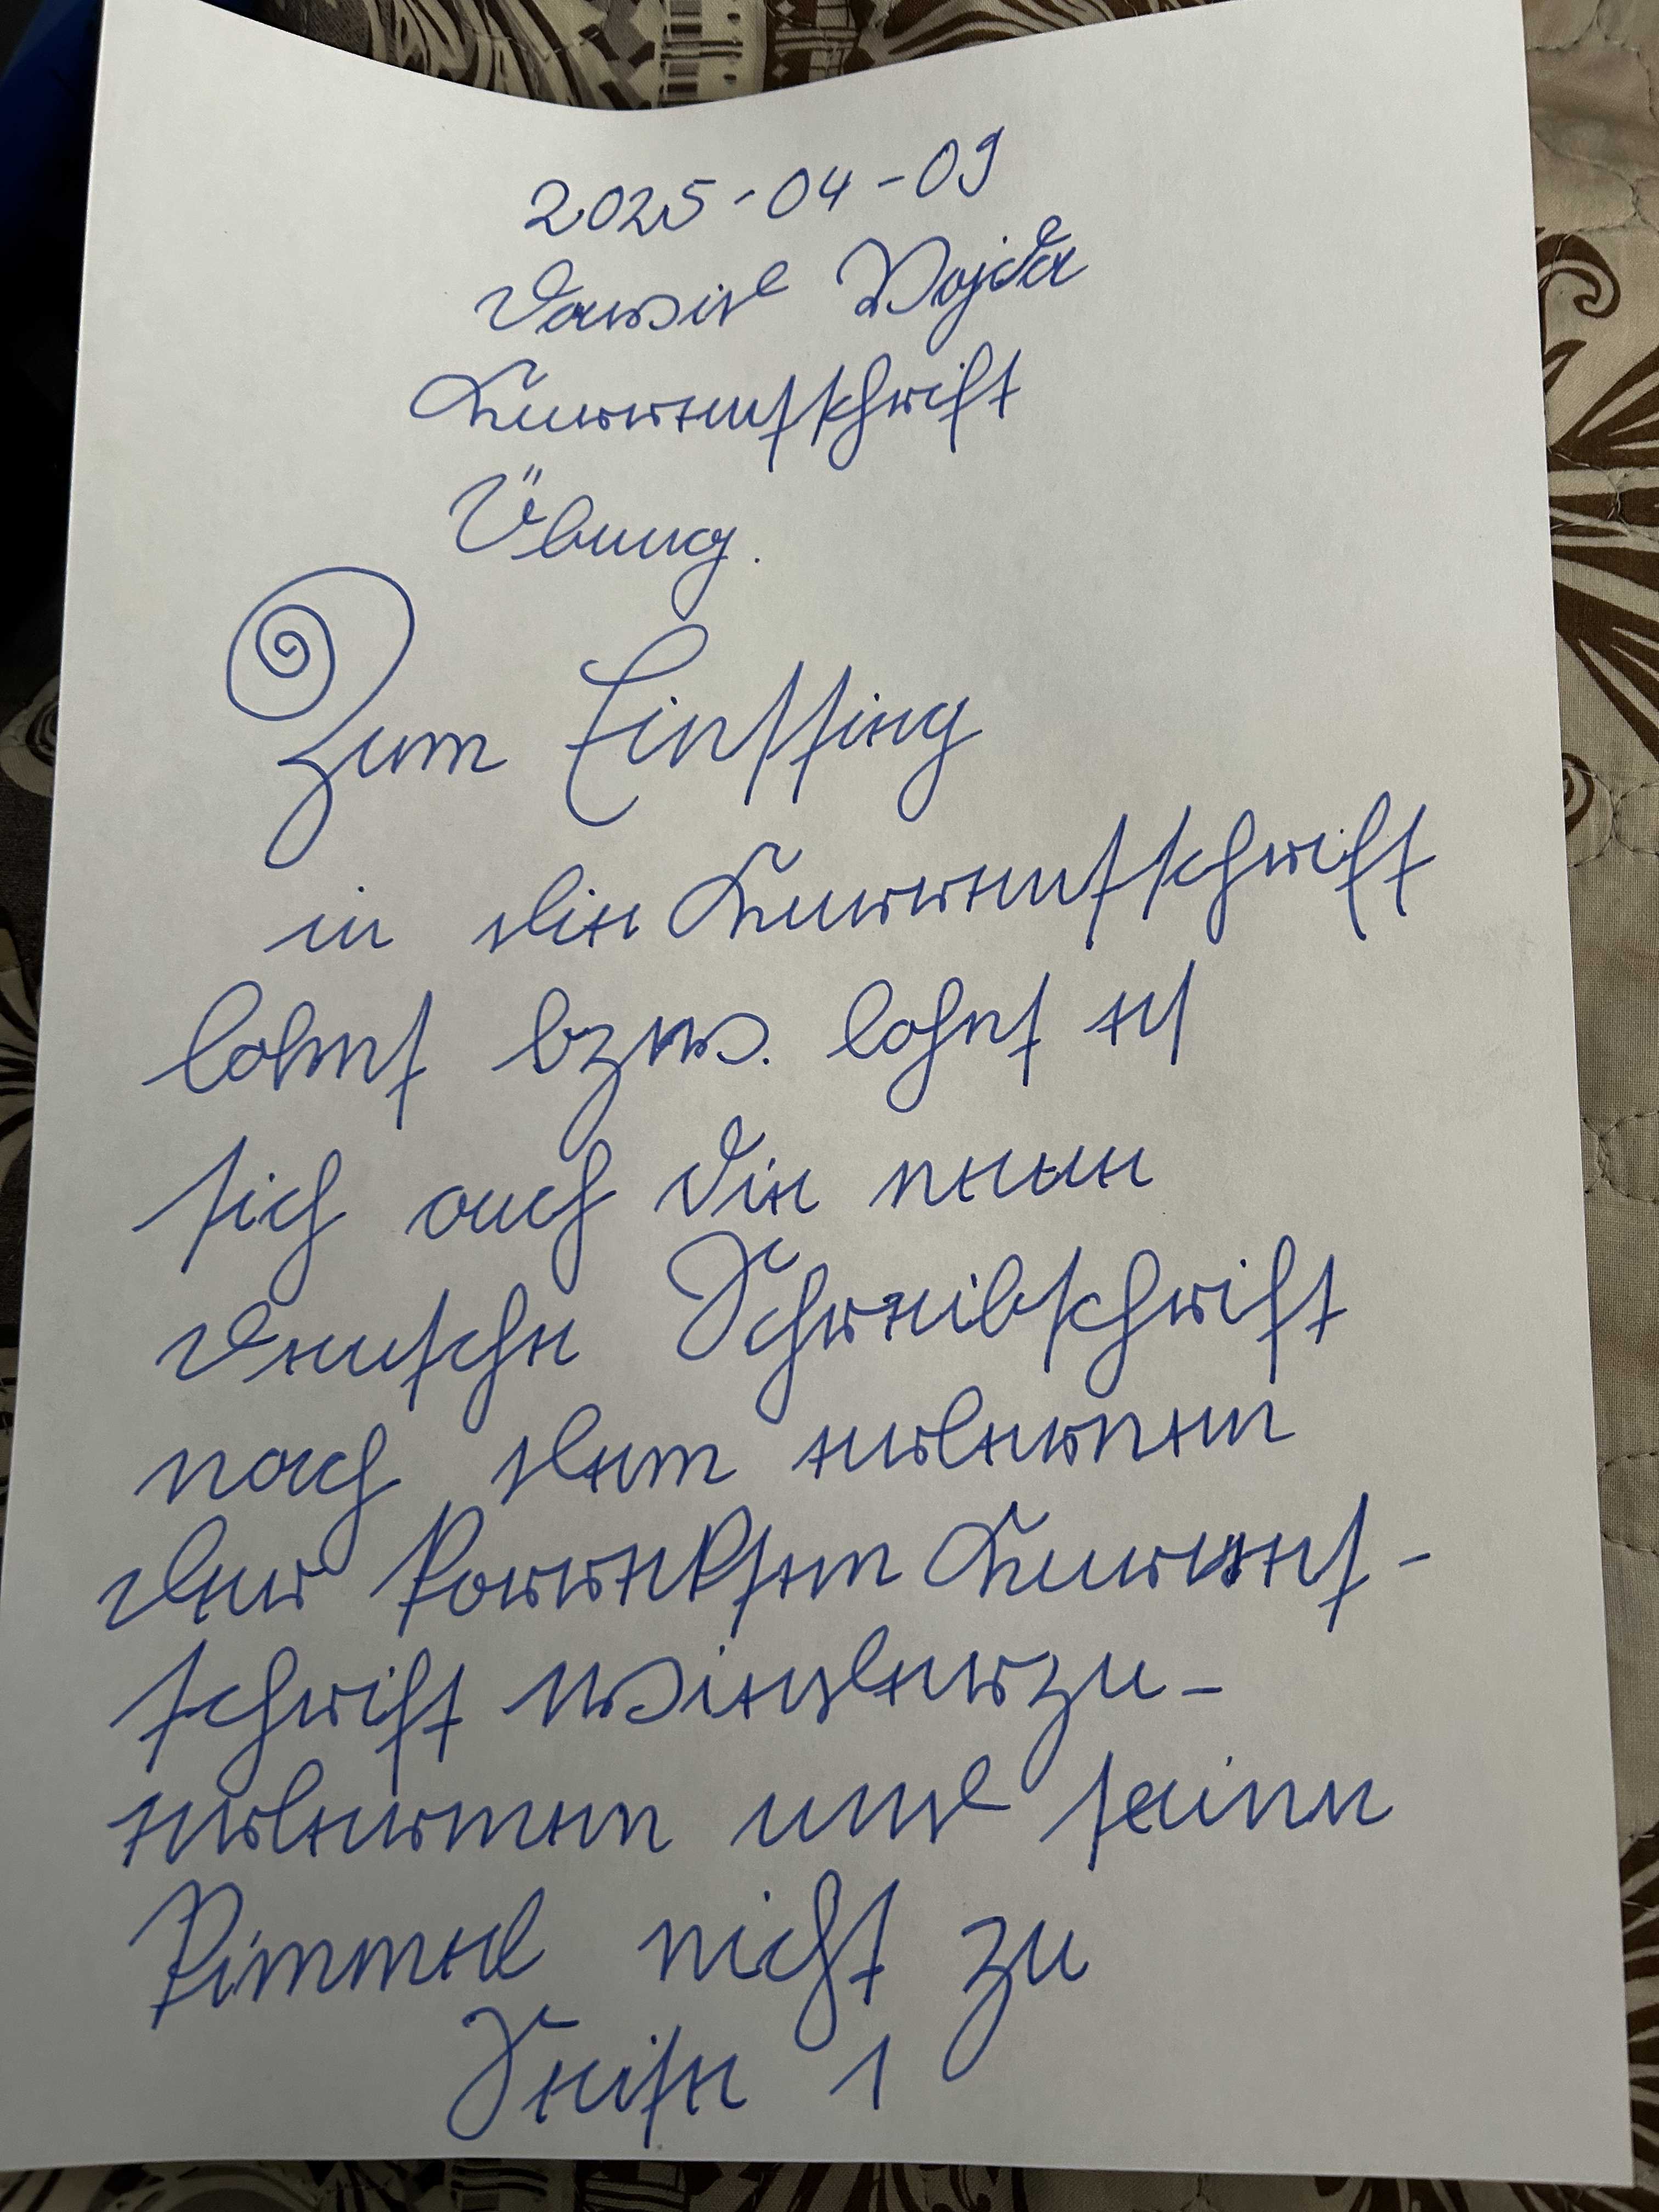 2025-04-09
Dawid Wojda
Kurrentschrift
Übung.
Zum Einstieg
in die Kurrentschrift
lohnt bzw. lohnt es
sich auch die neue
Deutsche Schreibschrift
nach dem erlernen
der korrekten Kurrent-
schrift wiederzu-
erlernen und seine
nicht zu
Seite 1